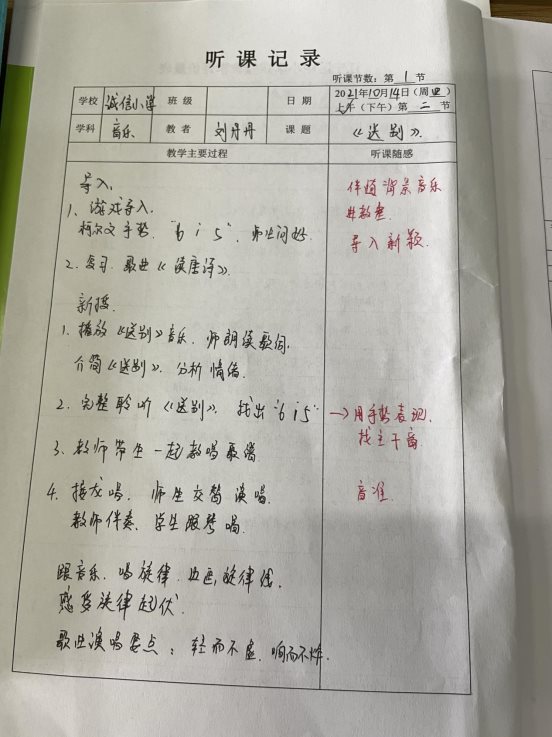 听课记录
听课节数：第1节
学校 诚信小学 班级 日期 2021年10月14日（周四）
上午（下午）第二节
学科 音乐 教者 刘丹丹 课题 《送别》.
教学主要过程 听课随感
导入.
伴随背景音乐
1、游戏导入.
柯尔文手势, "6 i 5", 师生问好.
导入新颖.
2. 复习歌曲《读唐诗》.
新授.
1. 播放《送别》音乐, 师朗读歌词.
介简《送别》, 分析情绪.
2. 完整聆听《送别》, 找出 "6 i 5" →用手势表现.
找主干音
3. 教师带生一起教唱
4. 接龙唱, 师生交替演唱. 音准.
教师伴奏, 学生跟琴唱.
跟音乐, 唱旋律, 边画旋律线.
感受旋律起伏.
歌曲演唱要点：轻而不虚, 响而不炸.